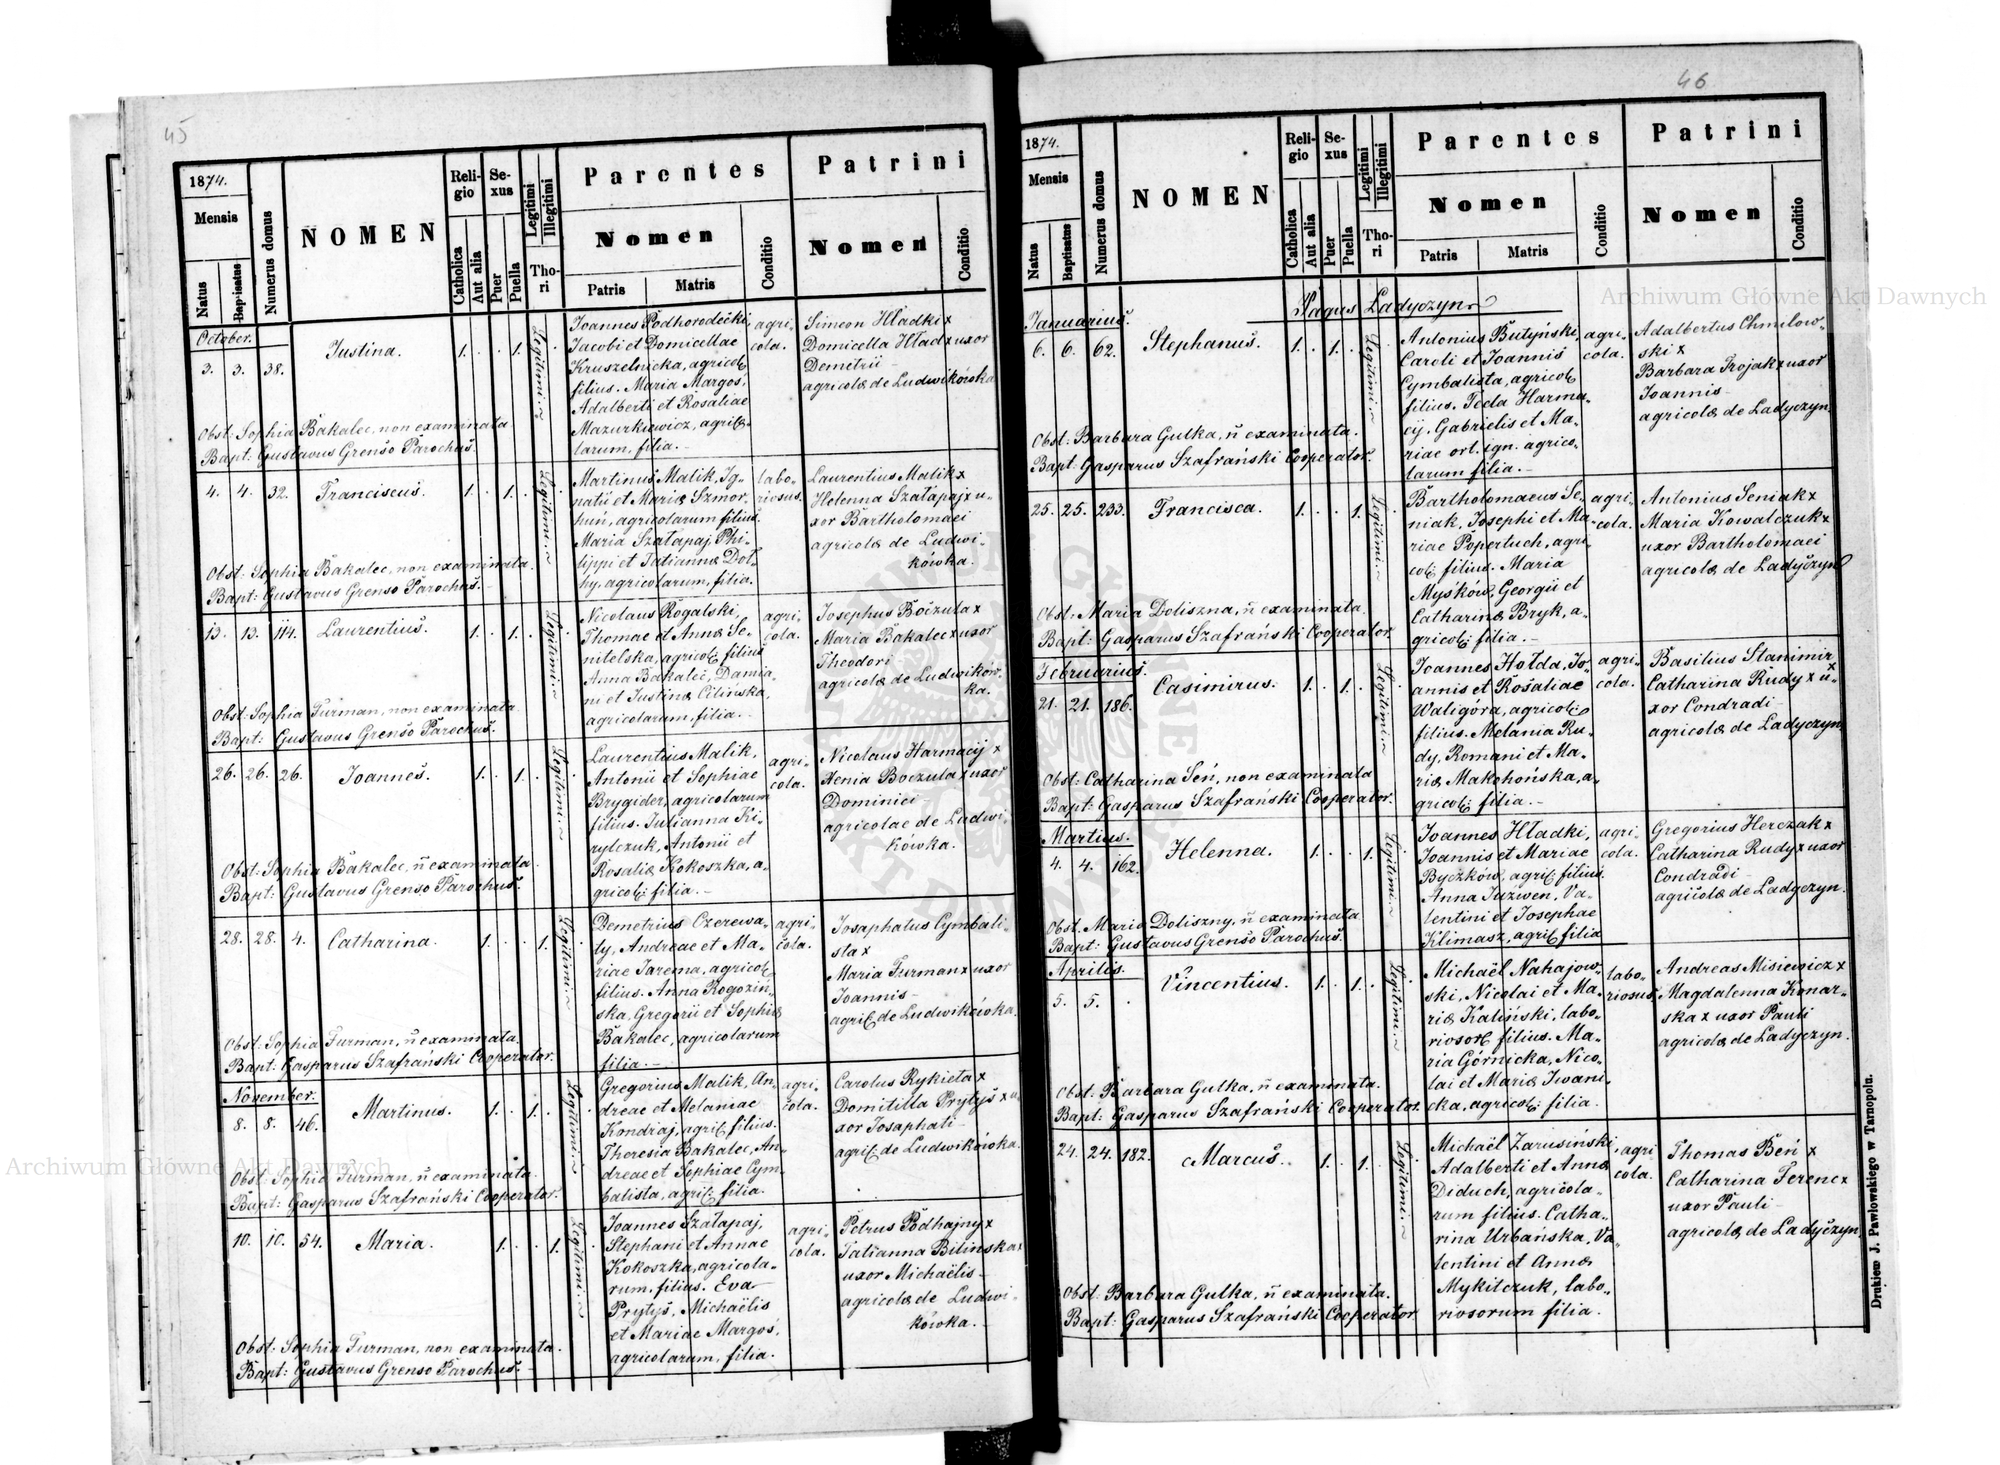 45
1874.
Mensis
Natus
Baptisatus
Numerus domus
NOMEN
Religio
Catholica
Aut alia
Sexus
Puer
Puella
Legitimi
Illegitimi
Thori
Parentes
Nomen
Patris
Matris
Conditio
Patrini
Nomen
Conditio
October.
3. 3. 38. Justina. 1. . . 1. Legitimi
Joannes Podhorodecki,
Jacobi et Domicellae
Kruszelnicka, agricol:
filius. Maria Margoś,
Adalberti et Rosaliae
Mazurkiewicz, agrico-
larum, filia.
agri-
cola.
Simeon Hładki x
Domicella Hład x uxor
Demetrii
agricolæ de Ludwikówka
Obst: Sophia Bakalec, non examinata
Bapt: Gustavus Grenso Parochus.
4. 4. 32. Franciscus. 1. . 1. . Legitimi
Martinus Malik, Ig-
natii et Mariæ Szmor-
huń, agricolarum filius.
Maria Szałapaj Phi-
lippi et Tatiannæ Doł-
hy, agricolarum, filia.
labo-
riosus.
Laurentius Malik x
Helenna Szałapaj x u-
xor Bartholomaei
agricolæ de Ludwi-
kówka.
Obst: Sophia Bakalec, non examinata.
Bapt: Gustavus Grenso Parochus.
13. 13. 114. Laurentius. 1. . 1. . Legitimi
Nicolaus Rogalski,
Thomae et Annæ Se-
nitelska, agricol: filius
Anna Bakalec, Damia-
ni et Justinæ Cilińska,
agricolarum, filia.
agri-
cola.
Josephus Boczula x
Maria Bakalec x uxor
Theodori
agricolæ de Ludwików-
ka.
Obst: Sophia Furman, non examinata
Bapt: Gustavus Grenso Parochus.
26. 26. 26. Joannes. 1. . 1. . Legitimi
Laurentius Malik,
Antonii et Sophiae
Brygider, agricolarum
filius. Julianna Ki-
rylczuk, Antonii et
Rosaliæ Kokoszka, a-
gricol: filia.
agri-
cola.
Nicolaus Harmacij x
Xenia Boczula x uxor
Dominici
agricolae de Ludwi-
kówka.
Obst: Sophia Bakalec, ñ examinata.
Bapt: Gustavus Grenso Parochus.
28. 28. 4. Catharina. 1. . . 1. Legitimi
Demetrius Czerewa-
ty, Andreae et Ma-
riae Jarema, agricol:
filius. Anna Rogoziń-
ska, Gregorii et Sophiæ
Bakalec, agricolarum
filia.
agri-
cola.
Josaphatus Cymbali-
sta x
Maria Furman x uxor
Joannis
agric: de Ludwikówka.
Obst: Sophia Furman, ñ examinata.
Bapt: Gasparus Szafrański Cooperator.
November.
8. 8. 46. Martinus. 1. . 1. . Legitimi
Gregorius Malik, An-
dreae et Melaniae
Kondraj, agric: filius.
Theresia Bakalec, An-
dreae et Sophiae Cym-
balista, agric: filia.
agri-
cola.
Carolus Rykieta x
Domitilla Prytyś x u-
xor Josaphati
agric: de Ludwikówka.
Obst: Sophia Furman, ñ examinata.
Bapt: Gasparus Szafrański Cooperator.
10. 10. 54. Maria. 1. . . 1. Legitimi
Joannes Szałapaj,
Stephani et Annae
Kokoszka, agricola-
rum, filius. Eva
Prytyś, Michaëlis
et Mariae Margoś,
agricolarum, filia.
agri-
cola.
Petrus Podhajny x
Tatianna Bilinska x
uxor Michaëlis
agricolæ de Ludwi-
kówka.
Obst: Sophia Furman, non examinata.
Bapt: Gustavus Grenso Parochus.
46
1874.
Mensis
Natus
Baptisatus
Numerus domus
NOMEN
Religio
Catholica
Aut alia
Sexus
Puer
Puella
Legitimi
Illegitimi
Thori
Parentes
Nomen
Patris
Matris
Conditio
Patrini
Nomen
Conditio
Pagus Ladyczyn
Januarius.
6. 6. 62. Stephanus. 1. . 1. . Legitimi
Antonius Butyński,
Caroli et Joannis
Cymbalista, agricol:
filius. Tecla Harma-
cij, Gabrielis et Ma-
riae ort. ign. agrico-
larum filia.
agri-
cola.
Adalbertus Chmilow-
ski x
Barbara Trojak x uxor
Joannis
agricolæ de Ladyczyn.
Obst: Barbara Gulka, ñ examinata.
Bapt: Gasparus Szafrański Cooperator.
25. 25. 233. Francisca. 1. . . 1. Legitimi
Bartholomaeus Se-
niak, Josephi et Ma-
riae Poperluch, agri-
col: filius. Maria
Myśków, Georgii et
Catharinæ Bryk, a-
gricol: filia.
agri-
cola.
Antonius Seniak x
Maria Kowalczuk x
uxor Bartholomaei
agricolæ de Ladyczyn
Obst: Maria Doliszna, ñ examinata.
Bapt: Gasparus Szafrański Cooperator.
Februarius.
21. 21. 186. Casimirus. 1. . 1. . Legitimi
Joannes Hołda, Jo-
annis et Rosaliae
Waligóra, agricol:
filius. Melania Ru-
dy, Romani et Ma-
riæ Makohońska, a-
gricol: filia.
agri-
cola.
Basilius Stanimir
x
Catharina Rudy x u-
xor Condradi
agricolæ de Ladyczyn.
Obst: Catharina Seń, non examinata
Bapt: Gasparus Szafrański Cooperator.
Martius.
4. 4. 162. Helenna. 1. . . 1. Legitimi
Joannes Hładki,
Joannis et Mariae
Byczków, agric: filius.
Anna Jazwen, Va-
lentini et Josephae
Klimasz, agric: filia
agri-
cola.
Gregorius Herczak x
Catharina Rudy x uxor
Condradi
agricolæ de Ladyczyn.
Obst. Maria Doliszny, ñ examinata
Bapt: Gustavus Grenso Parochus.
Aprilis.
5. 5. . Vincentius. 1. . 1. . Legitimi
Michaël Nahajow-
ski, Nicolai et Ma-
riæ Kaliński, labo-
riosor: filius. Ma-
ria Górnicka, Nico-
lai et Mariæ Iwani-
cka, agricol: filia.
labo-
riosus.
Andreas Misiewicz x
Magdalenna Konar-
ska x uxor Pauli
agricolæ de Ladyczyn.
Obst: Barbara Gulka, ñ examinata.
Bapt: Gasparus Szafrański Cooperator.
24. 24. 182. Marcus. 1. . 1. . Legitimi
Michaël Zarusiński,
Adalberti et Annæ
Diduch, agricola-
rum filius. Catha-
rina Urbańska, Va-
lentini et Annæ
Mykitczuk, labo-
riosorum filia.
agri
cola.
Thomas Beń x
Catharina Ferenc x
uxor Pauli
agricolæ de Ladyczyn
Obst: Barbara Gulka, ñ examinata.
Bapt: Gasparus Szafrański Cooperator.
Drukiem J. Pawłowskiego w Tarnopolu.
Archiwum Główne Akt Dawnych
Archiwum Główne Akt Dawnych